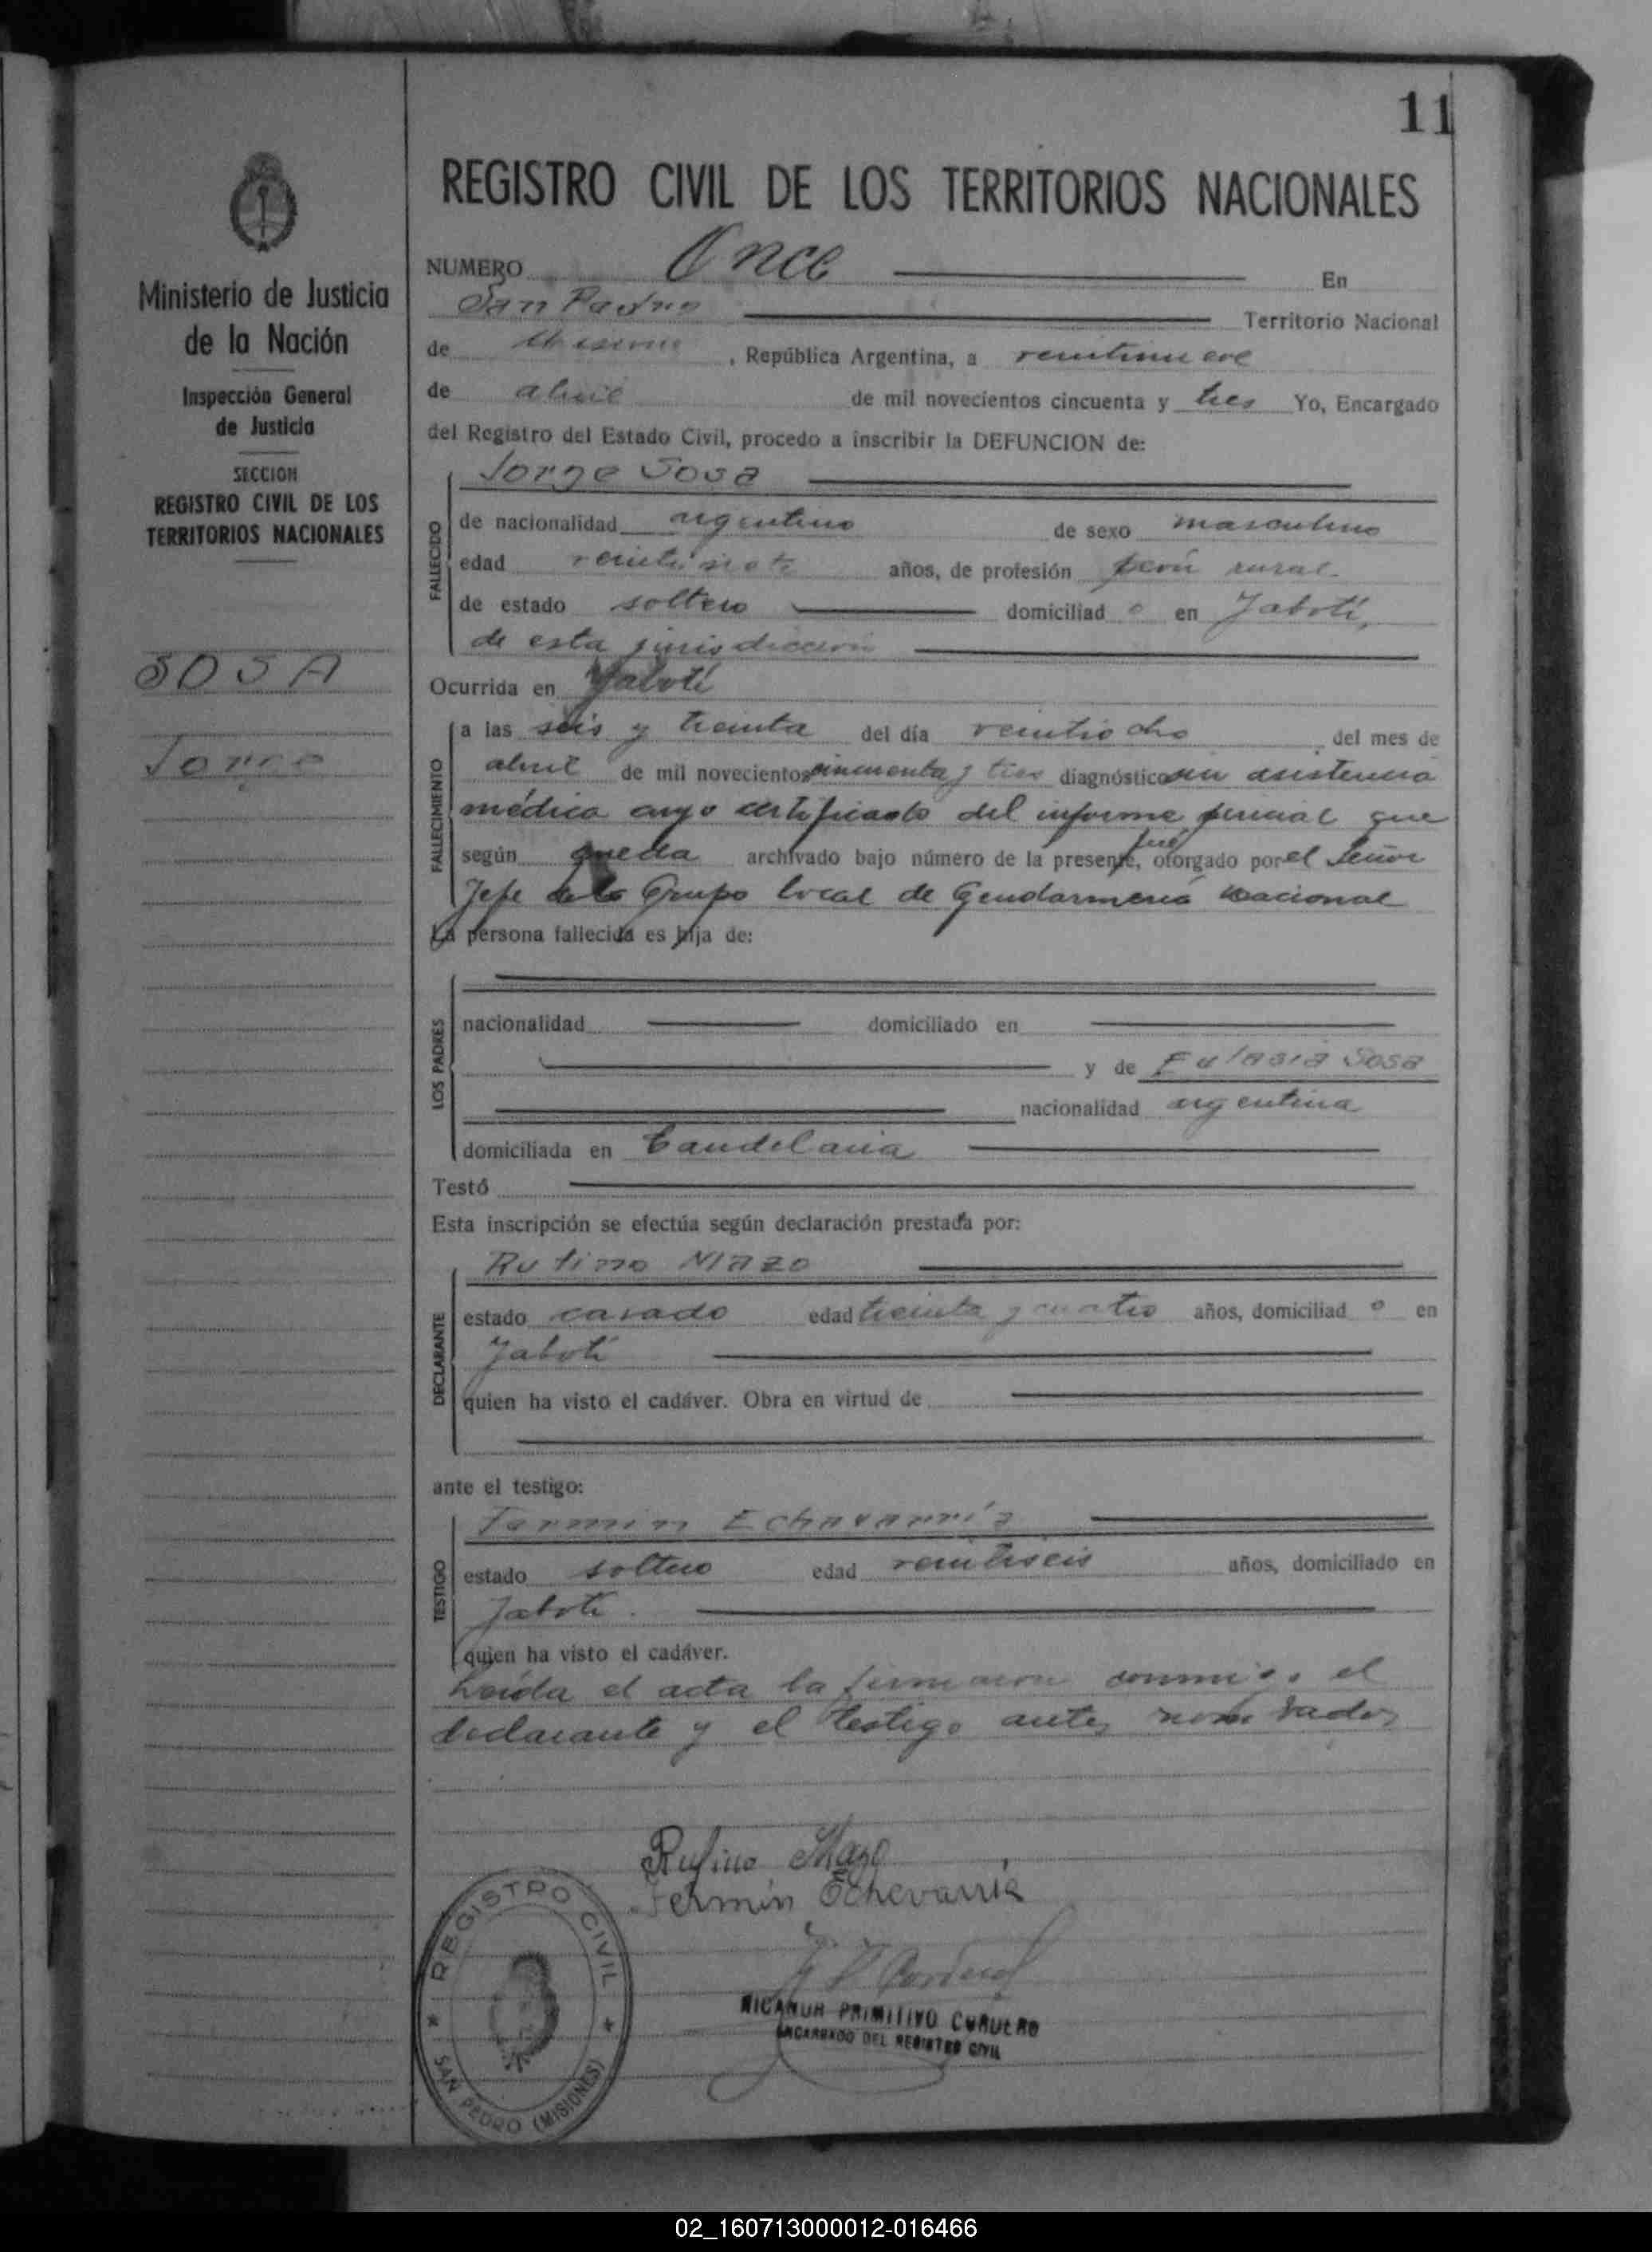 11
REGISTRO CIVIL DE LOS TERRITORIOS NACIONALES
Ministerio de Justicia
de la Nación
Inspección General
de Justicia
SECCION
REGISTRO CIVIL DE LOS
TERRITORIOS NACIONALES
SOSA
Jorge
NUMERO Once En
San Pedro Territorio Nacional
de Misiones, República Argentina, a veintinueve
de abril de mil novecientos cincuenta y tres Yo, Encargado
del Registro del Estado Civil, procedo a inscribir la DEFUNCION de:
Jorge Sosa
FALLECIDO
de nacionalidad argentino de sexo masculino
edad veintisiete años, de profesión peón rural
de estado soltero domiciliad o en Yabotí,
de esta jurisdicción
Ocurrida en Yabotí
FALLECIMIENTO
a las seis y treinta del día veintiocho del mes de
abril de mil novecientos cincuenta y tres diagnóstico sin asistencia
médica cuyo certificado del informe pericial que
según queda archivado bajo número de la presente, fué otorgado por el Señor
Jefe de Grupo local de Gendarmería Nacional
La persona fallecida es hija de:
LOS PADRES
nacionalidad domiciliado en
y de Eulasia Sosa
nacionalidad argentina
domiciliada en Candelaria
Testó
Esta inscripción se efectúa según declaración prestada por:
Rufino Mazo
DECLARANTE
estado casado edad treinta y cuatro años, domiciliad o en
Yabotí
quien ha visto el cadáver. Obra en virtud de
ante el testigo:
Fermin Echavarría
TESTIGO
estado soltero edad veintiseis años, domiciliado en
Yabotí.
quien ha visto el cadáver.
Leída el acta la firmaron conmigo el
declarante y el testigo antes nombrados
Rufino Mazo
Fermín Echevarria
NICANOR PRIMITIVO CORDERO
ENCARGADO DEL REGISTRO CIVIL
REGISTRO CIVIL
SAN PEDRO (MISIONES)
02_160713000012-016466